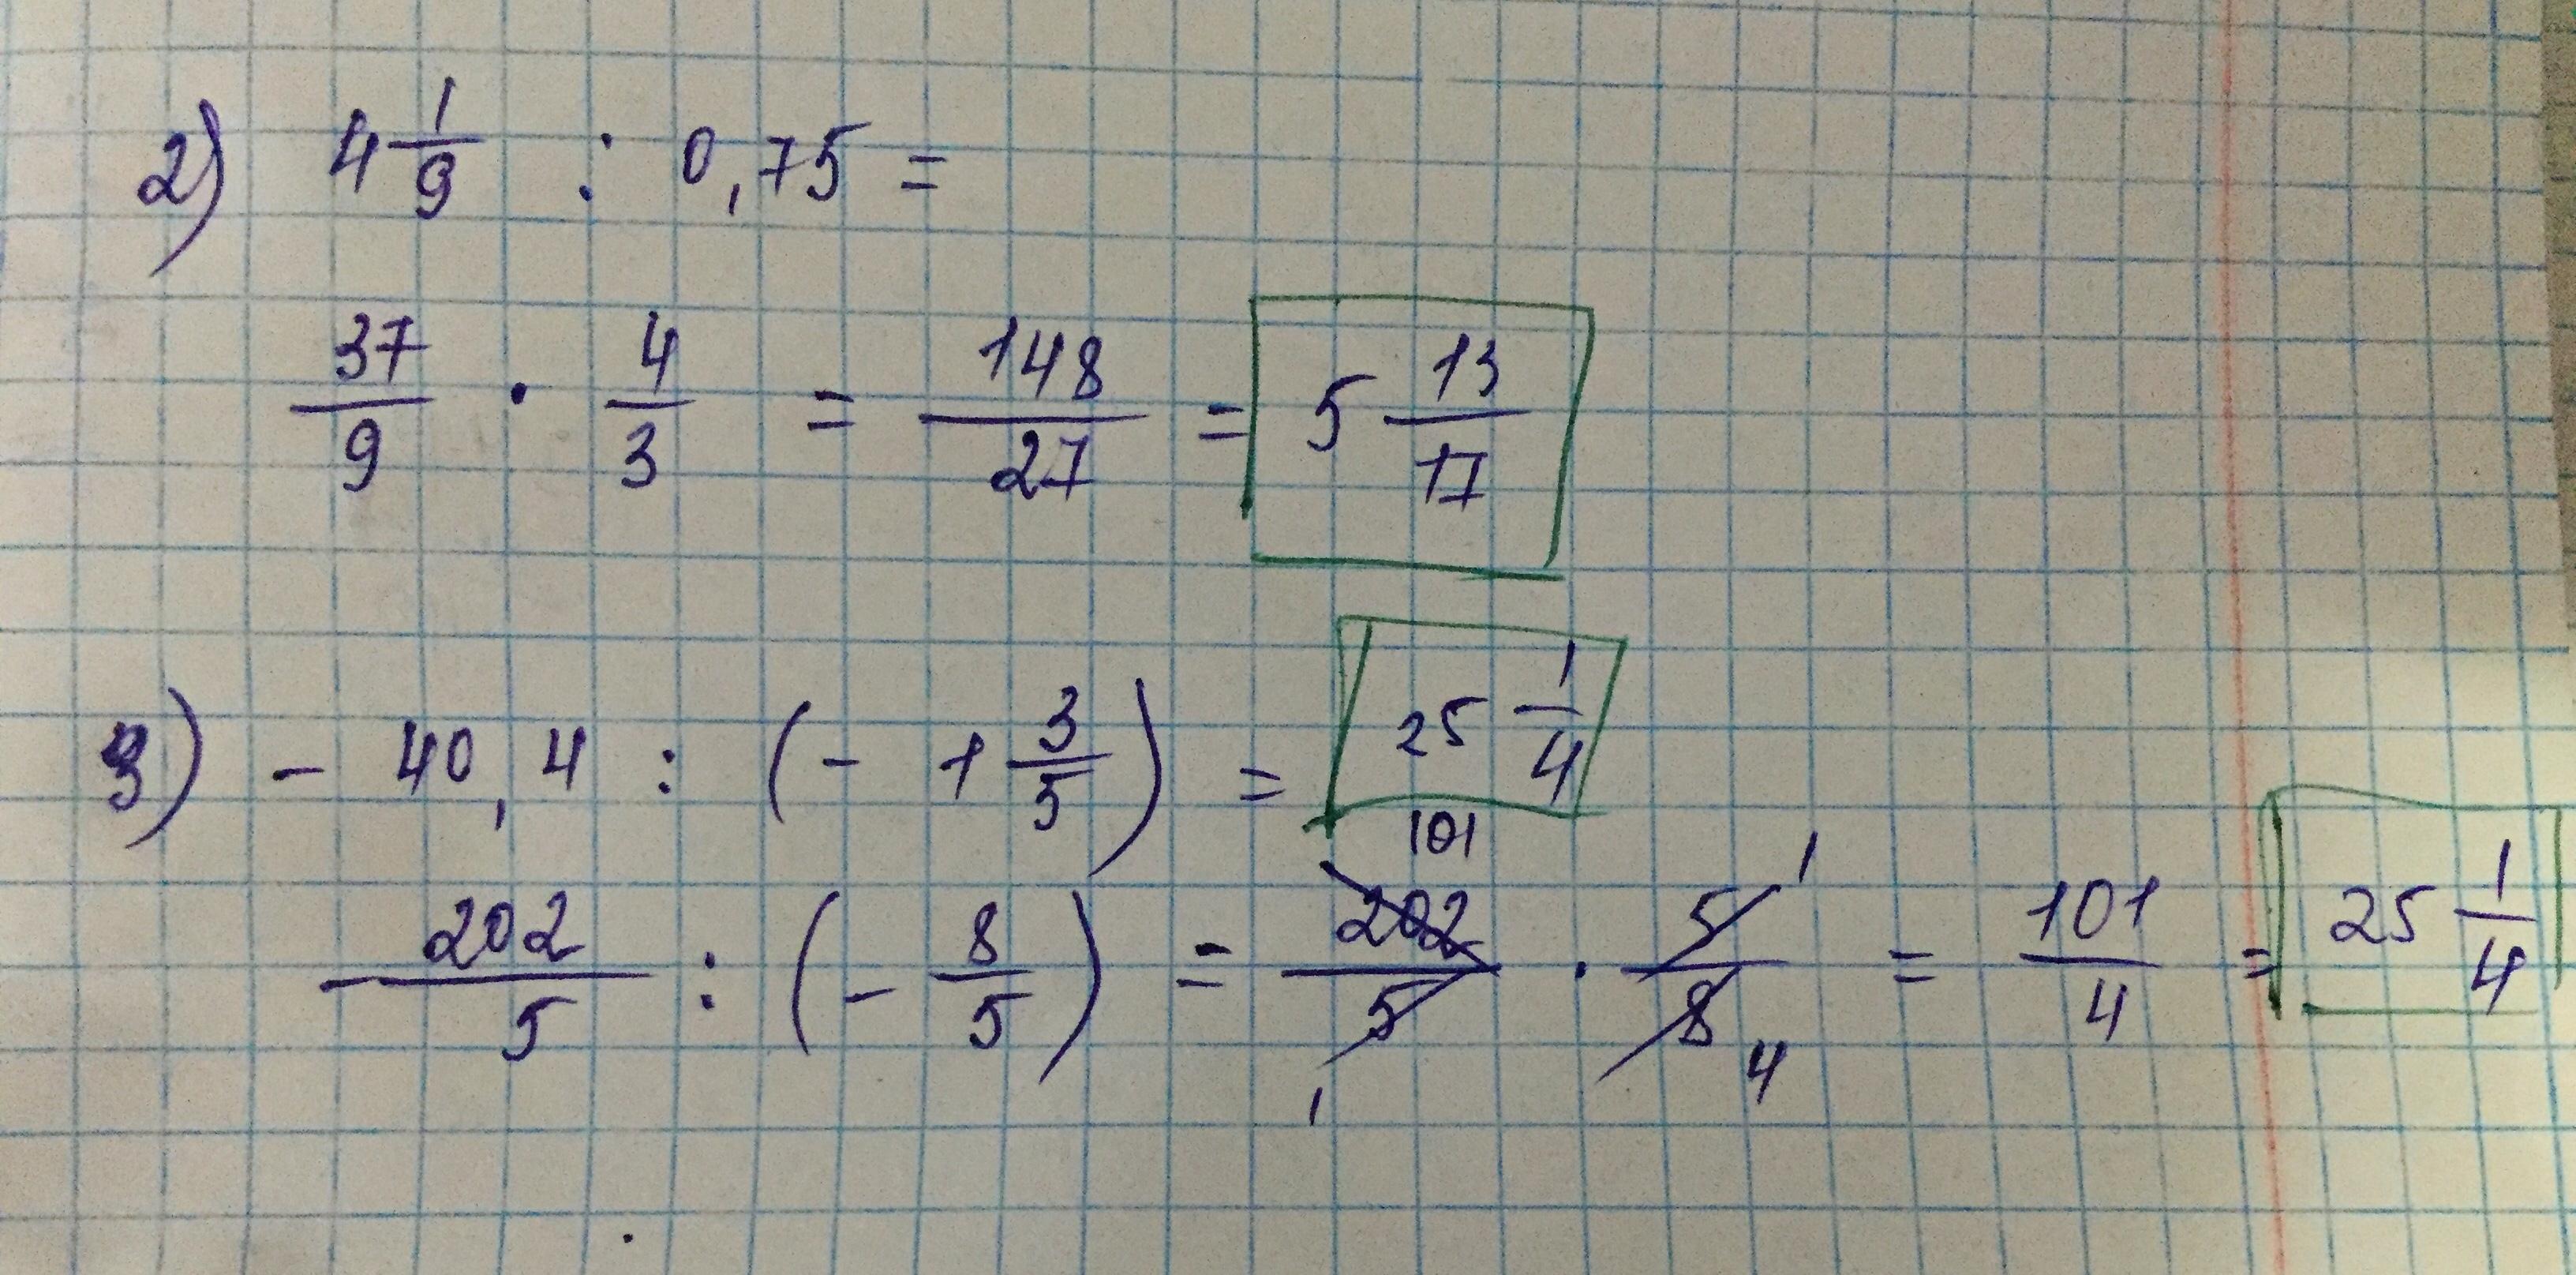 2) 4 1/9 : 0,75 =
37/9 · 4/3 = 148/27 = 5 13/17
3) - 40,4 : (- 1 3/5) = 25 1/4
- 202/5 : (- 8/5) = 202/5 · 5/8 = 101/4 = 25 1/4
101 1
1 4